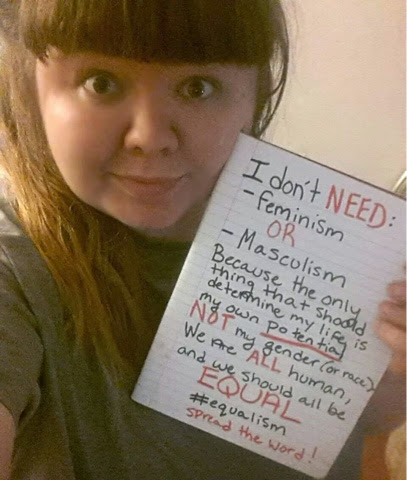 I don't NEED:
- Feminism
OR
- Masculism
Because the only
thing that should
determine my life is
my own potential
NOT my gender (or race)
We Are ALL human,
and we should all be
EQUAL
#equalism
spread the word!